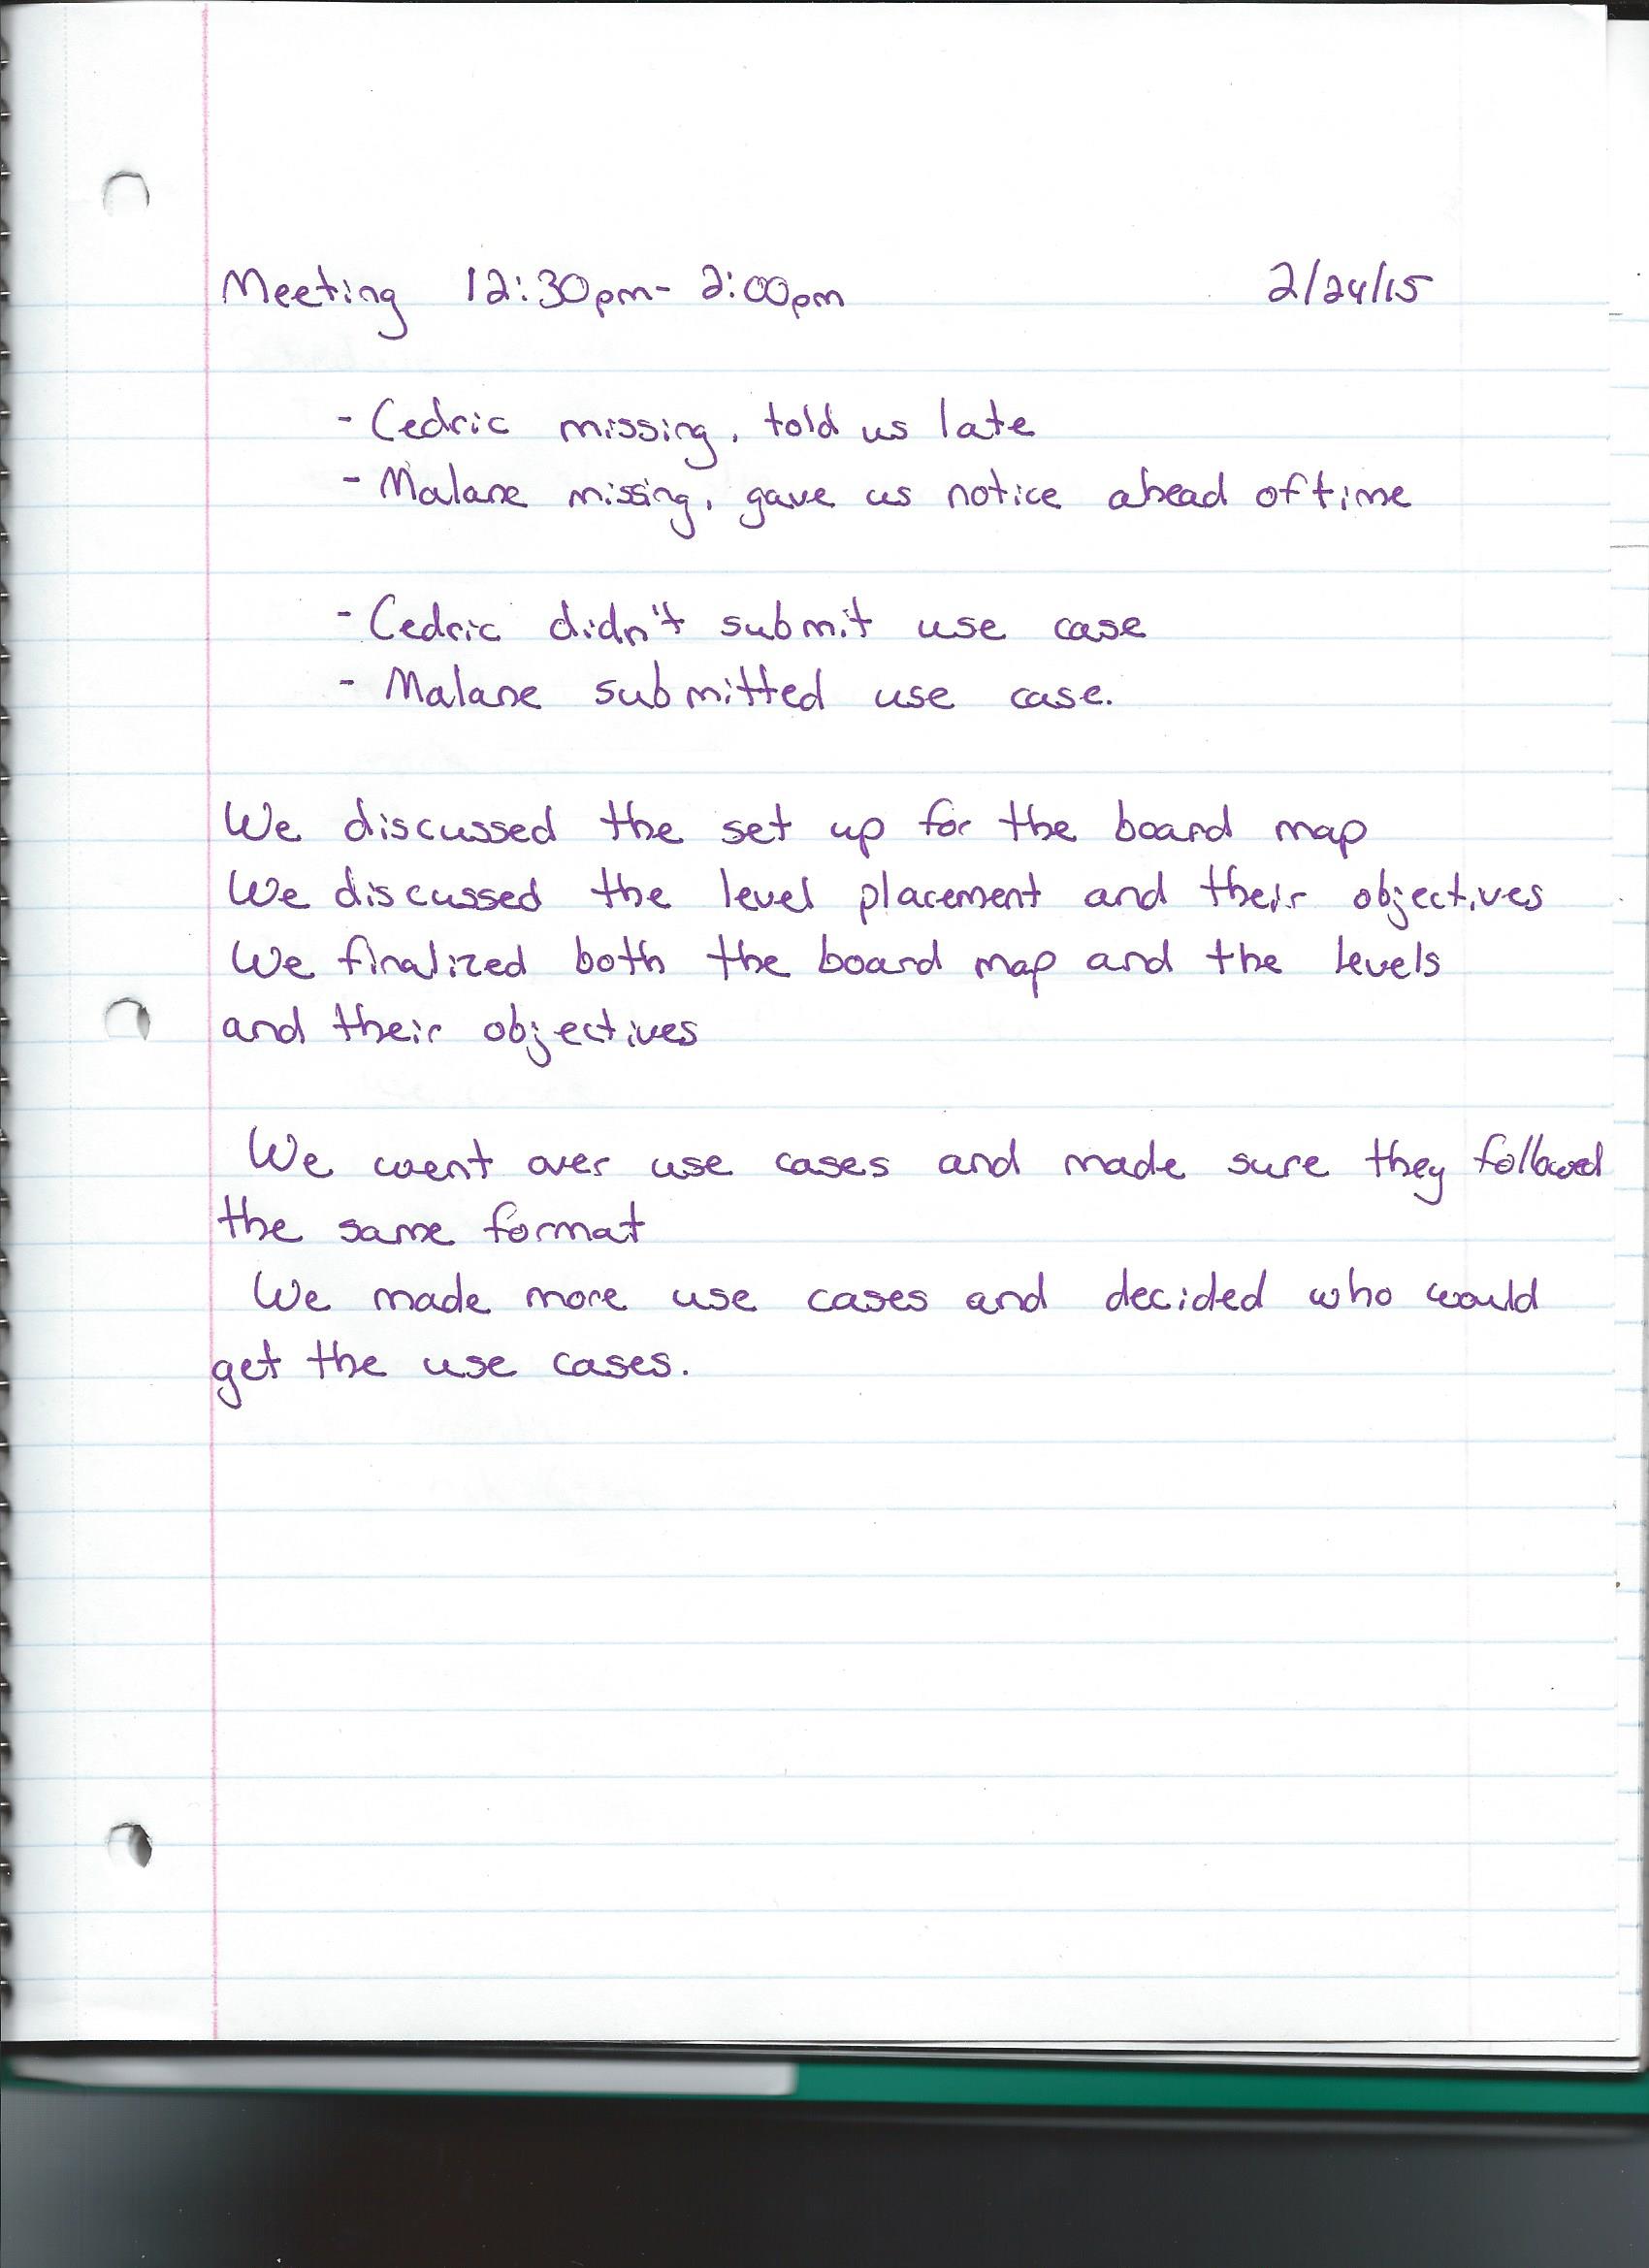 Meeting 12:30pm- 2:00pm 2/24/15
- Cedric missing, told us late
- Malane missing, gave us notice ahead of time
- Cedric didn't submit use case
- Malane submitted use case.
We discussed the set up for the board map
We discussed the level placement and their objectives
We finalized both the board map and the levels
and their objectives
We went over use cases and made sure they followed
the same format
We made more use cases and decided who would
get the use cases.